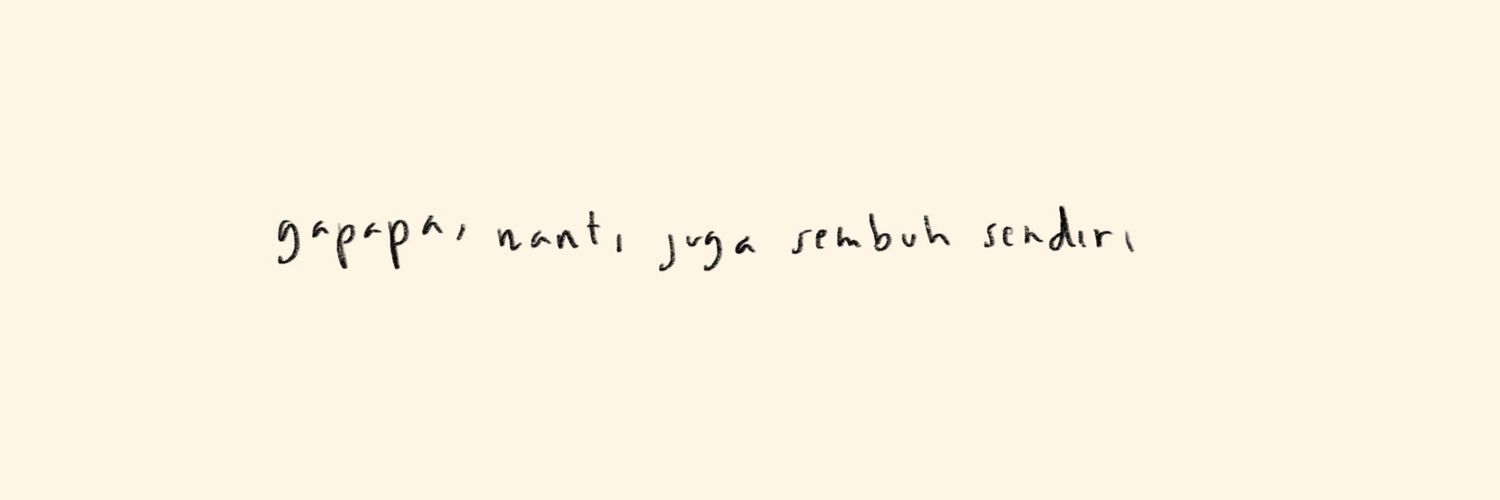 gapapa, nanti juga sembuh sendiri